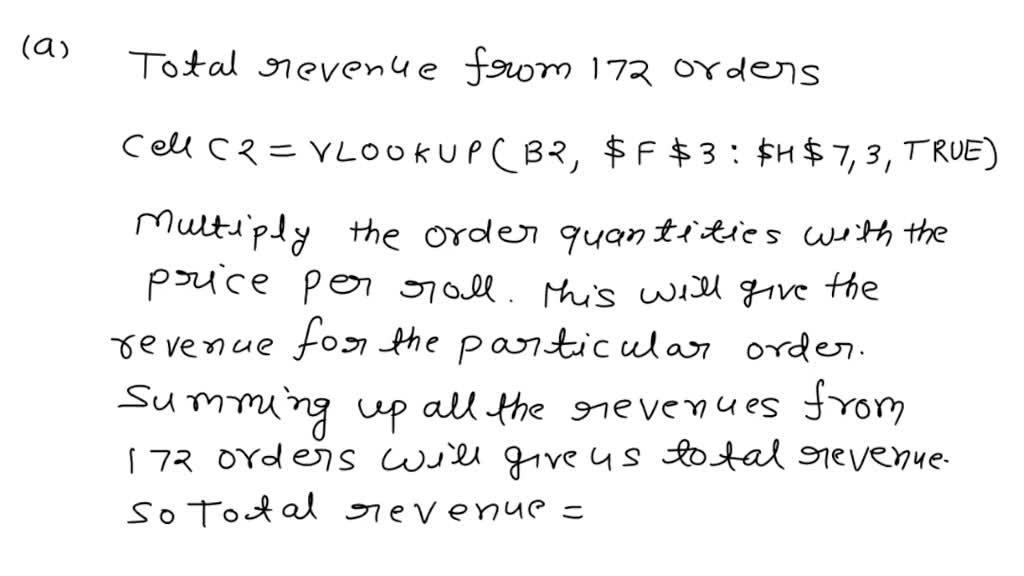 (a) Total revenue from 172 orders
Cell C2 = VLOOKUP(B2, $F$3:$H$7,3, TRUE)
Multiply the order quantities with the
price per roll. This will give the
revenue for the particular order.
Summing up all the revenues from
172 orders will give us total revenue.
So Total revenue =